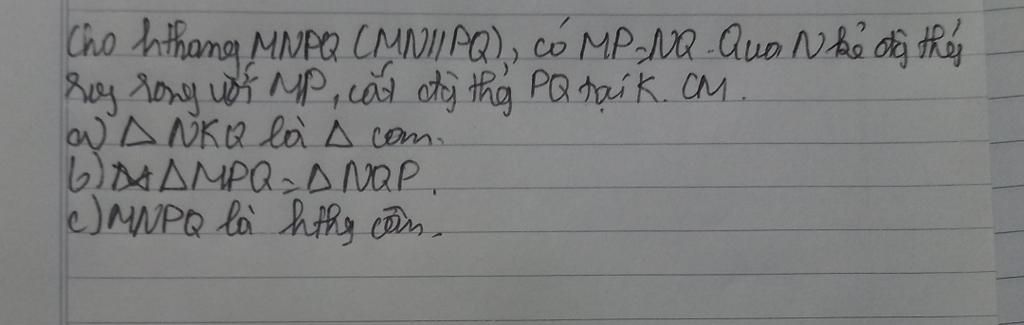 Cho hthang MNPQ (MN//PQ), có MP=NQ. Qua N kẻ đg thẳg
sog song với MP, cắt đg thg PQ tại K. CM.
a) △ NKQ là △ cân.
b) △MPQ = △NQP.
c) MNPQ là hthg cân.